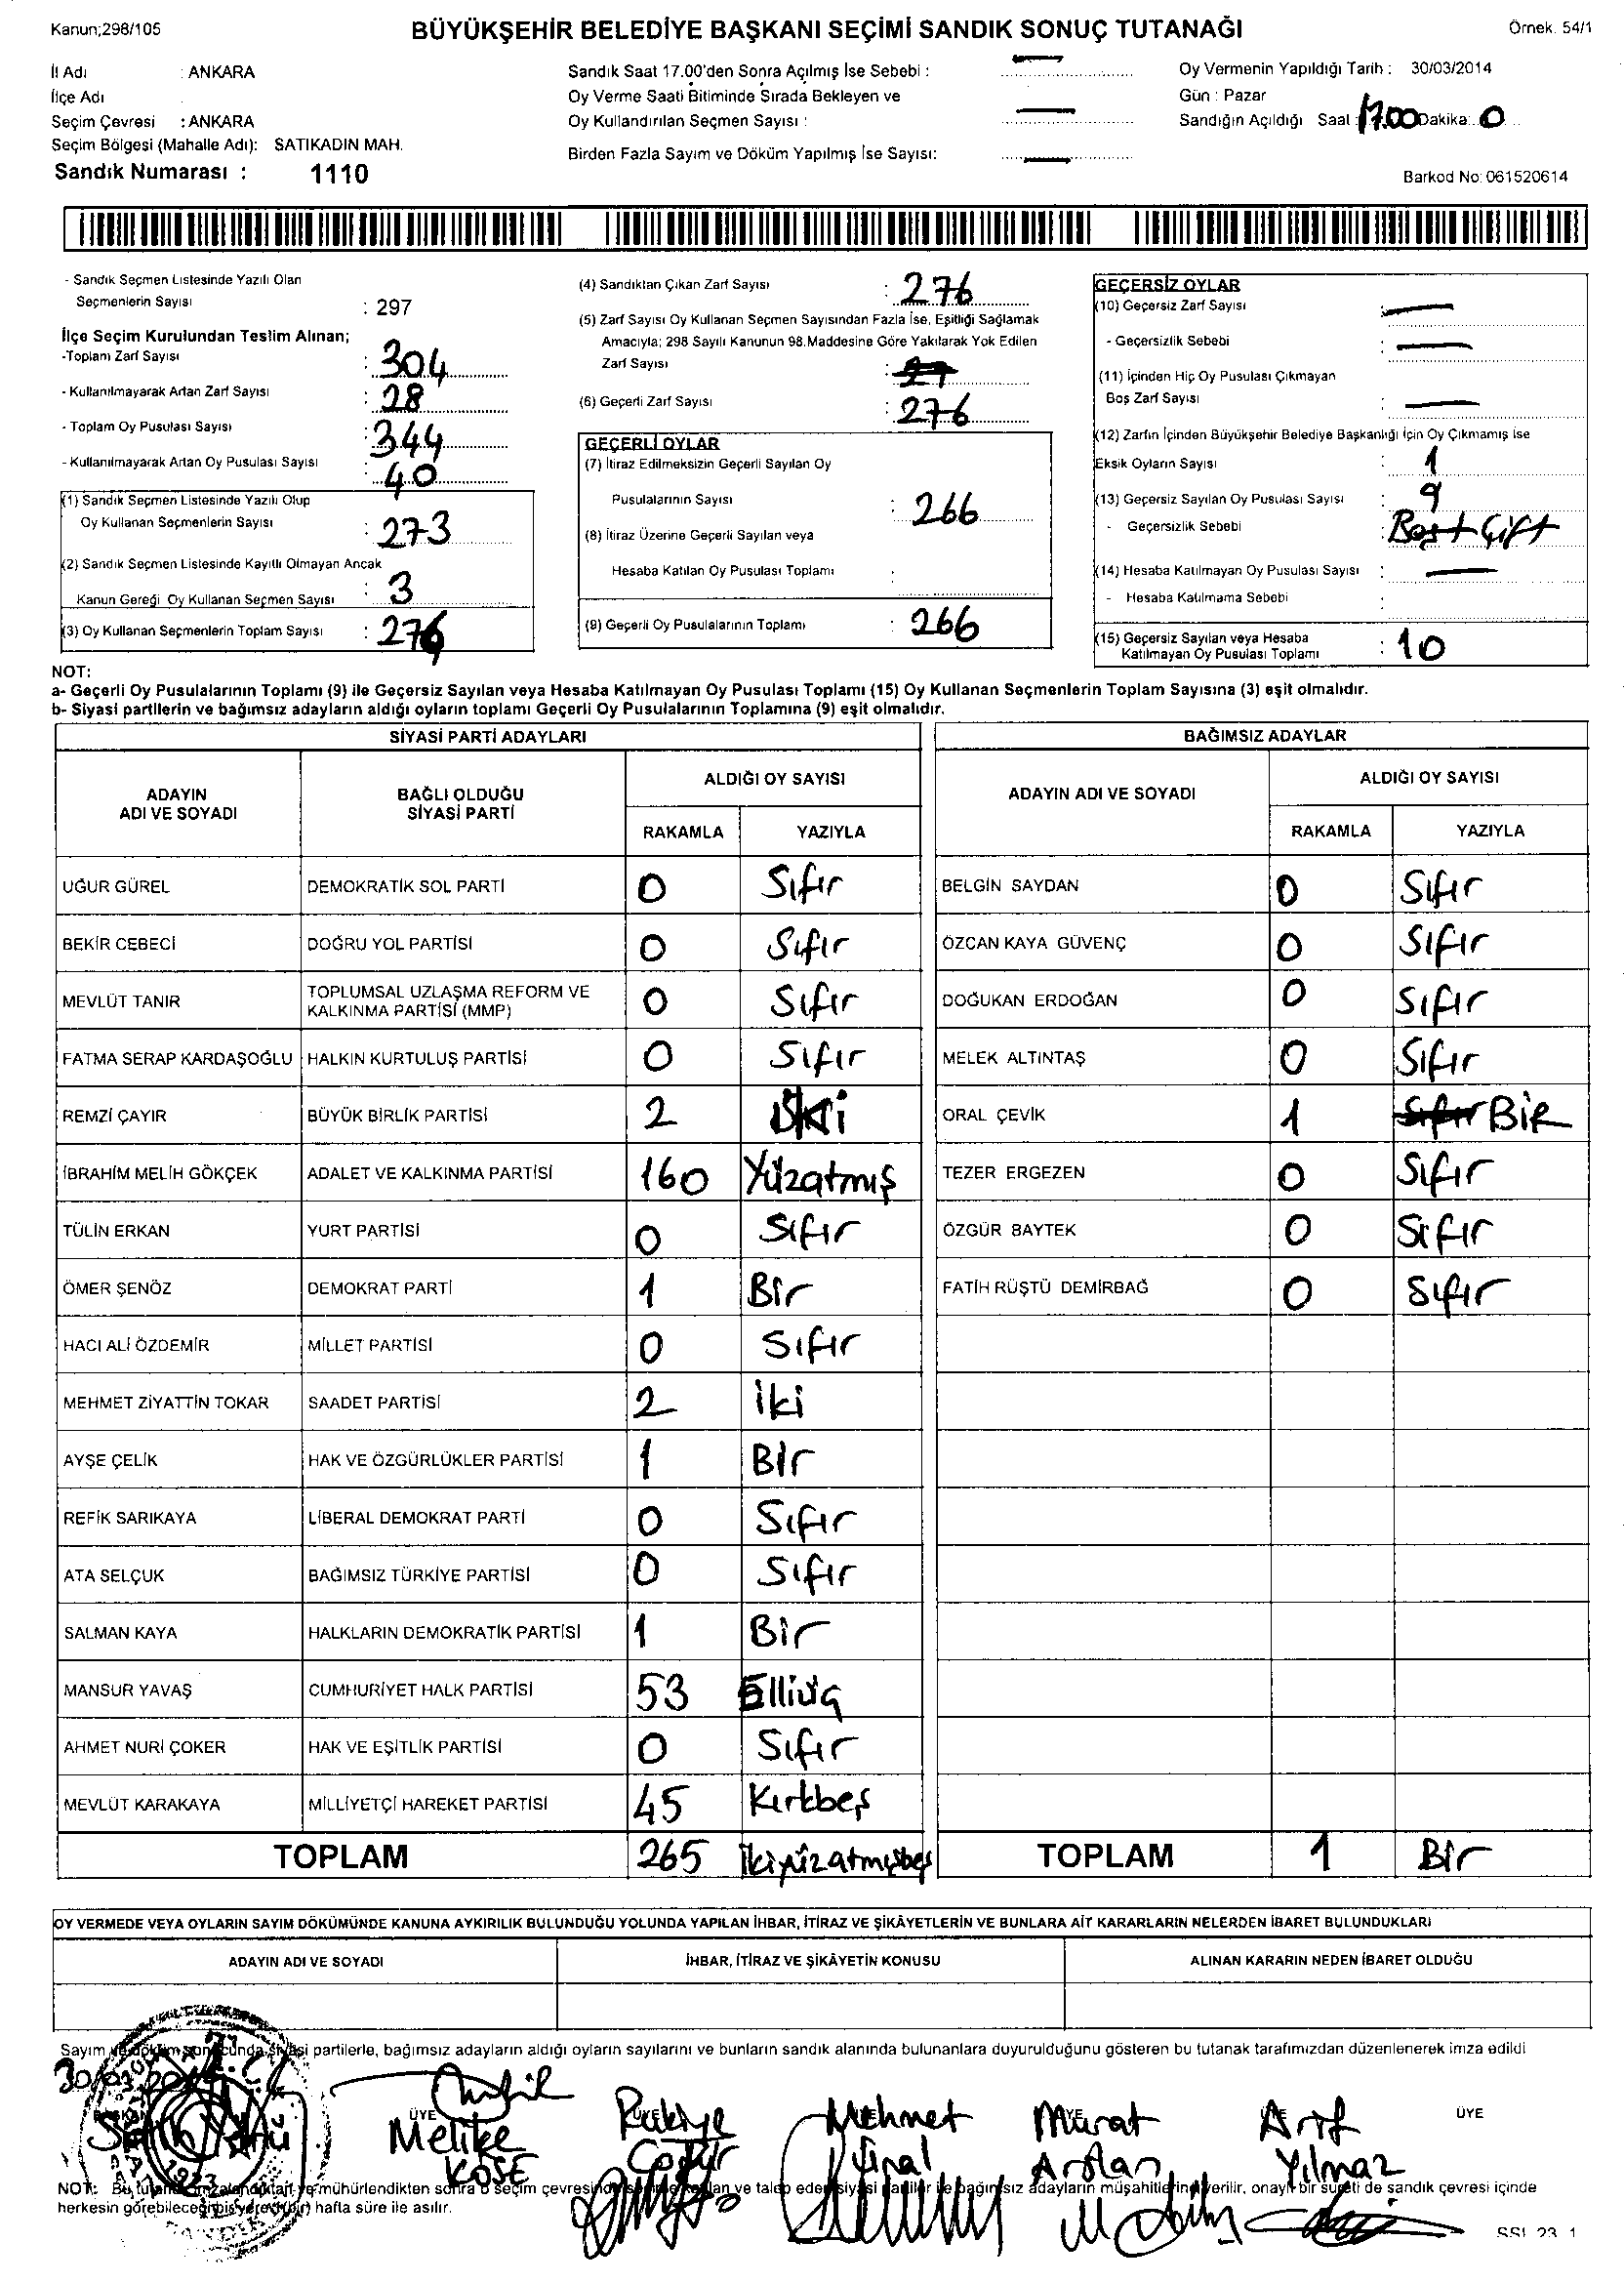 Kanun;298/105
BÜYÜKŞEHİR BELEDİYE BAŞKANI SEÇİMİ SANDIK SONUÇ TUTANAĞI
Örnek. 54/1
İl Adı : ANKARA
İlçe Adı
Seçim Çevresi : ANKARA
Seçim Bölgesi (Mahalle Adı): SATIKADIN MAH.
Sandık Numarası : 1110
Sandık Saat 17.00'den Sonra Açılmış İse Sebebi :
Oy Verme Saati Bitiminde Sırada Bekleyen ve
Oy Kullandırılan Seçmen Sayısı :
Birden Fazla Sayım ve Döküm Yapılmış İse Sayısı:
Oy Vermenin Yapıldığı Tarih : 30/03/2014
Gün : Pazar
Sandığın Açıldığı Saat : 17.00 Dakika: 0
Barkod No: 061520614
- Sandık Seçmen Listesinde Yazılı Olan
Seçmenlerin Sayısı : 297
İlçe Seçim Kurulundan Teslim Alınan;
-Toplam Zarf Sayısı : 304
- Kullanılmayarak Artan Zarf Sayısı : 28
- Toplam Oy Pusulası Sayısı : 344
- Kullanılmayarak Artan Oy Pusulası Sayısı : 40
(1) Sandık Seçmen Listesinde Yazılı Olup
Oy Kullanan Seçmenlerin Sayısı : 273
(2) Sandık Seçmen Listesinde Kayıtlı Olmayan Ancak
Kanun Gereği Oy Kullanan Seçmen Sayısı : 3
(3) Oy Kullanan Seçmenlerin Toplam Sayısı : 276
(4) Sandıktan Çıkan Zarf Sayısı : 276
(5) Zarf Sayısı Oy Kullanan Seçmen Sayısından Fazla İse, Eşitliği Sağlamak
Amacıyla; 298 Sayılı Kanunun 98.Maddesine Göre Yakılarak Yok Edilen
Zarf Sayısı :
(6) Geçerli Zarf Sayısı : 276
GEÇERLİ OYLAR
(7) İtiraz Edilmeksizin Geçerli Sayılan Oy
Pusulalarının Sayısı : 266
(8) İtiraz Üzerine Geçerli Sayılan veya
Hesaba Katılan Oy Pusulası Toplamı :
(9) Geçerli Oy Pusulalarının Toplamı : 266
GEÇERSİZ OYLAR
(10) Geçersiz Zarf Sayısı :
- Geçersizlik Sebebi :
(11) İçinden Hiç Oy Pusulası Çıkmayan
Boş Zarf Sayısı :
(12) Zarfın İçinden Büyükşehir Belediye Başkanlığı İçin Oy Çıkmamış İse
Eksik Oyların Sayısı : 1
(13) Geçersiz Sayılan Oy Pusulası Sayısı : 9
- Geçersizlik Sebebi : Boş+Çift
(14) Hesaba Katılmayan Oy Pusulası Sayısı :
- Hesaba Katılmama Sebebi :
(15) Geçersiz Sayılan veya Hesaba
Katılmayan Oy Pusulası Toplamı : 10
NOT:
a- Geçerli Oy Pusulalarının Toplamı (9) ile Geçersiz Sayılan veya Hesaba Katılmayan Oy Pusulası Toplamı (15) Oy Kullanan Seçmenlerin Toplam Sayısına (3) eşit olmalıdır.
b- Siyasi partilerin ve bağımsız adayların aldığı oyların toplamı Geçerli Oy Pusulalarının Toplamına (9) eşit olmalıdır.
SİYASİ PARTİ ADAYLARI
ADAYIN
ADI VE SOYADI
BAĞLI OLDUĞU
SİYASİ PARTİ
ALDIĞI OY SAYISI
RAKAMLA YAZIYLA
UĞUR GÜREL DEMOKRATİK SOL PARTİ 0 Sıfır
BEKİR CEBECİ DOĞRU YOL PARTİSİ 0 Sıfır
MEVLÜT TANIR TOPLUMSAL UZLAŞMA REFORM VE
KALKINMA PARTİSİ (MMP) 0 Sıfır
FATMA SERAP KARDAŞOĞLU HALKIN KURTULUŞ PARTİSİ 0 Sıfır
REMZİ ÇAYIR BÜYÜK BİRLİK PARTİSİ 2 İki
İBRAHİM MELİH GÖKÇEK ADALET VE KALKINMA PARTİSİ 160 Yüzatmış
TÜLİN ERKAN YURT PARTİSİ 0 Sıfır
ÖMER ŞENÖZ DEMOKRAT PARTİ 1 Bir
HACI ALİ ÖZDEMİR MİLLET PARTİSİ 0 Sıfır
MEHMET ZİYATTİN TOKAR SAADET PARTİSİ 2 İki
AYŞE ÇELİK HAK VE ÖZGÜRLÜKLER PARTİSİ 1 Bir
REFİK SARIKAYA LİBERAL DEMOKRAT PARTİ 0 Sıfır
ATA SELÇUK BAĞIMSIZ TÜRKİYE PARTİSİ 0 Sıfır
SALMAN KAYA HALKLARIN DEMOKRATİK PARTİSİ 1 Bir
MANSUR YAVAŞ CUMHURİYET HALK PARTİSİ 53 Elliüç
AHMET NURİ ÇOKER HAK VE EŞİTLİK PARTİSİ 0 Sıfır
MEVLÜT KARAKAYA MİLLİYETÇİ HAREKET PARTİSİ 45 Kırkbeş
TOPLAM 265 İkiyüzatmışbeş
BAĞIMSIZ ADAYLAR
ADAYIN ADI VE SOYADI
ALDIĞI OY SAYISI
RAKAMLA YAZIYLA
BELGİN SAYDAN 0 Sıfır
ÖZCAN KAYA GÜVENÇ 0 Sıfır
DOĞUKAN ERDOĞAN 0 Sıfır
MELEK ALTINTAŞ 0 Sıfır
ORAL ÇEVİK 1 Sıfır BİR
TEZER ERGEZEN 0 Sıfır
ÖZGÜR BAYTEK 0 Sıfır
FATİH RÜŞTÜ DEMİRBAĞ 0 Sıfır
TOPLAM 1 Bir
OY VERMEDE VEYA OYLARIN SAYIM DÖKÜMÜNDE KANUNA AYKIRILIK BULUNDUĞU YOLUNDA YAPILAN İHBAR, İTİRAZ VE ŞİKÂYETLERİN VE BUNLARA AİT KARARLARIN NELERDEN İBARET BULUNDUKLARI
ADAYIN ADI VE SOYADI
İHBAR, İTİRAZ VE ŞİKÂYETİN KONUSU
ALINAN KARARIN NEDEN İBARET OLDUĞU
Sayım ve döküm sonucunda siyasi partilerle, bağımsız adayların aldığı oyların sayılarını ve bunların sandık alanında bulunanlara duyurulduğunu gösteren bu tutanak tarafımızdan düzenlenerek imza edildi
ÜYE ÜYE
Melike Rukiye Mehmet Murat Arif
KÖSE Ünal Arslan Yılmaz
NOT: Bu mühürlendikten sonra o seçim çevresinde ve talep eden siyasi partiler ile bağımsız adayların müşahitlerine verilir, onaylı bir sureti de sandık çevresi içinde
herkesin görebileceği bir yere (bir) hafta süre ile asılır.
1923